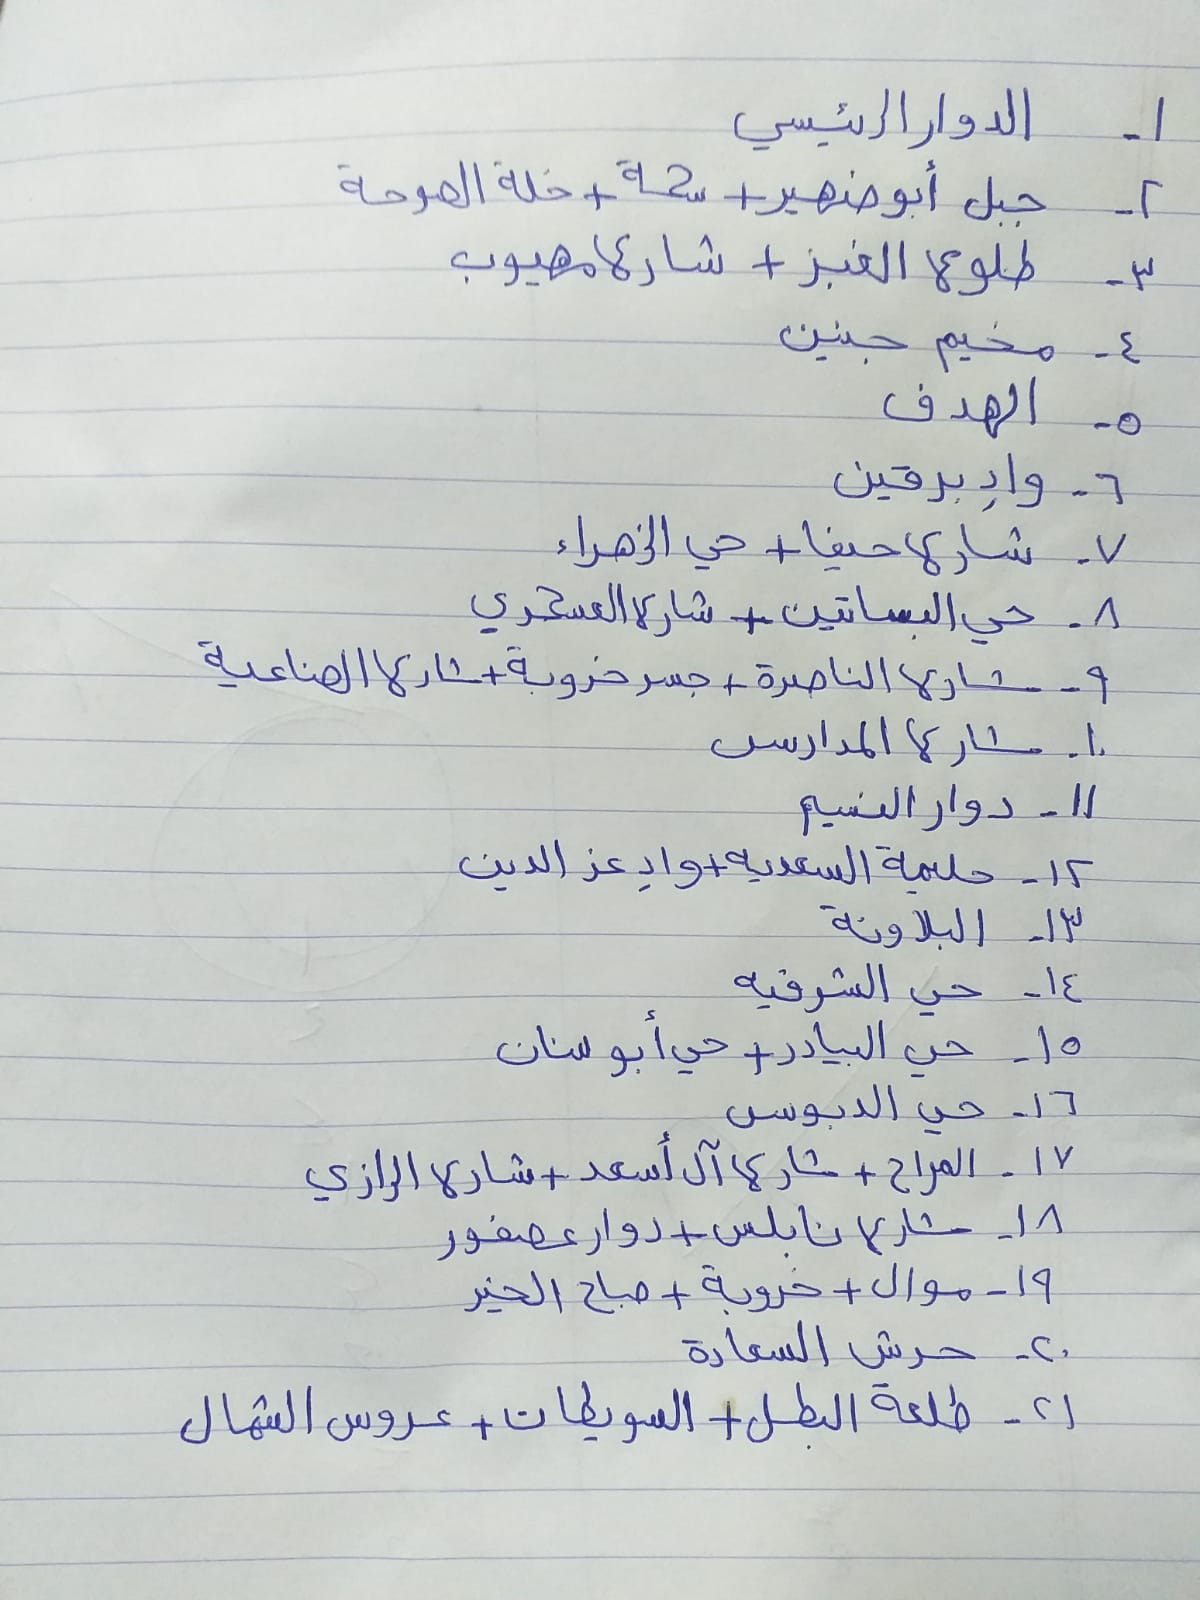 ١- الدوار الرئيسي
٢- جبل أبو ضهير + سكة + خلة الصوحة
٣- طلوع الغبز + شارع مهيوب
٤- مخيم جنين
٥- الهدف
٦- وادِ برقين
٧- شارع حيفا + حي الزهراء
٨- حي البساتين + شارع العسكري
٩- شارع الناصرة + جسر خروبة + شارع الصناعية
١٠- شارع المدارس
١١- دوار النسيم
١٢- حليمة السعديه + وادِ عز الدين
١٣- البلاونة
١٤- حي الشرقيه
١٥- حي البيادر + حي أبو سنان
١٦- حي الدبوس
١٧- المراح + شارع آل أسعد + شارع الرازي
١٨- شارع نابلس + دوار عصفور
١٩- موال + خروبة + صباح الخير
٢٠- حرش السعادة
٢١- طلعة البطل + السويطات + عروس الشمال